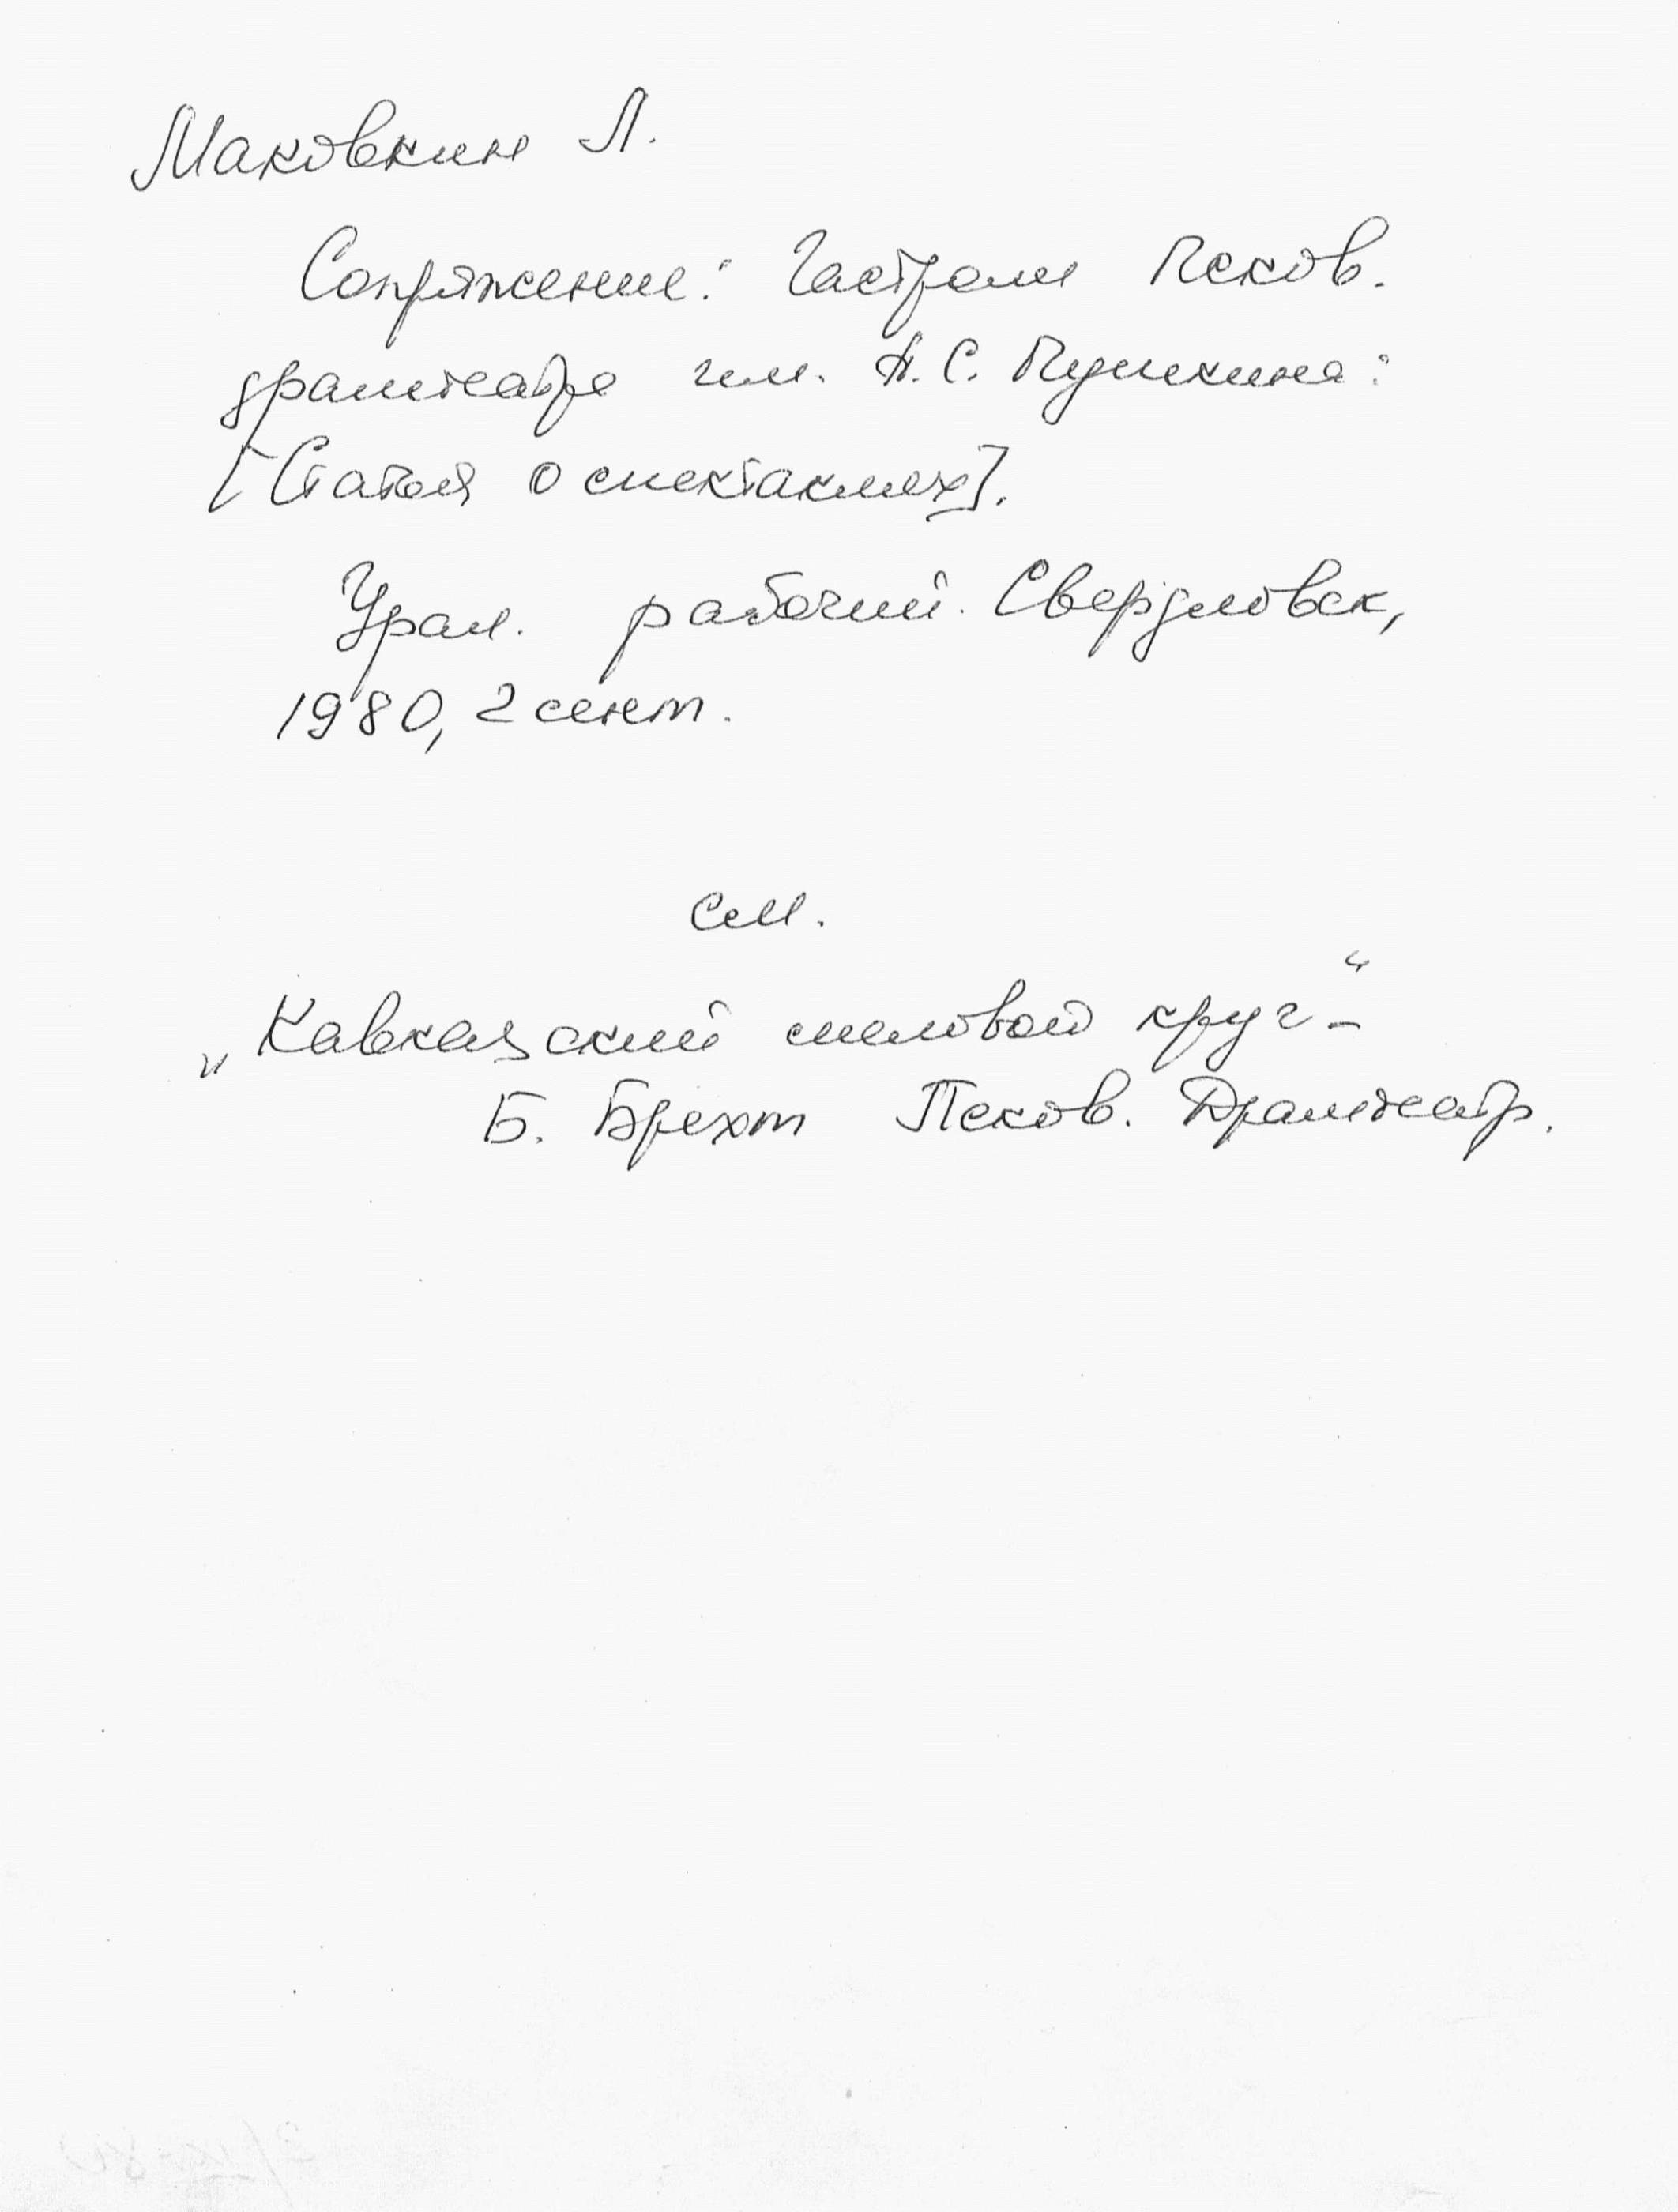 Маковкин Л.
Сопряжение: Гастроли Псков.
драмтеатра им. А.С. Пушкина:
[Статья о спектаклях].
Урал. рабочий. Свердловск,
1980, 2 сент.
См.
„Кавказский меловой круг“ –
Б. Брехт Псков. Драмтеатр.